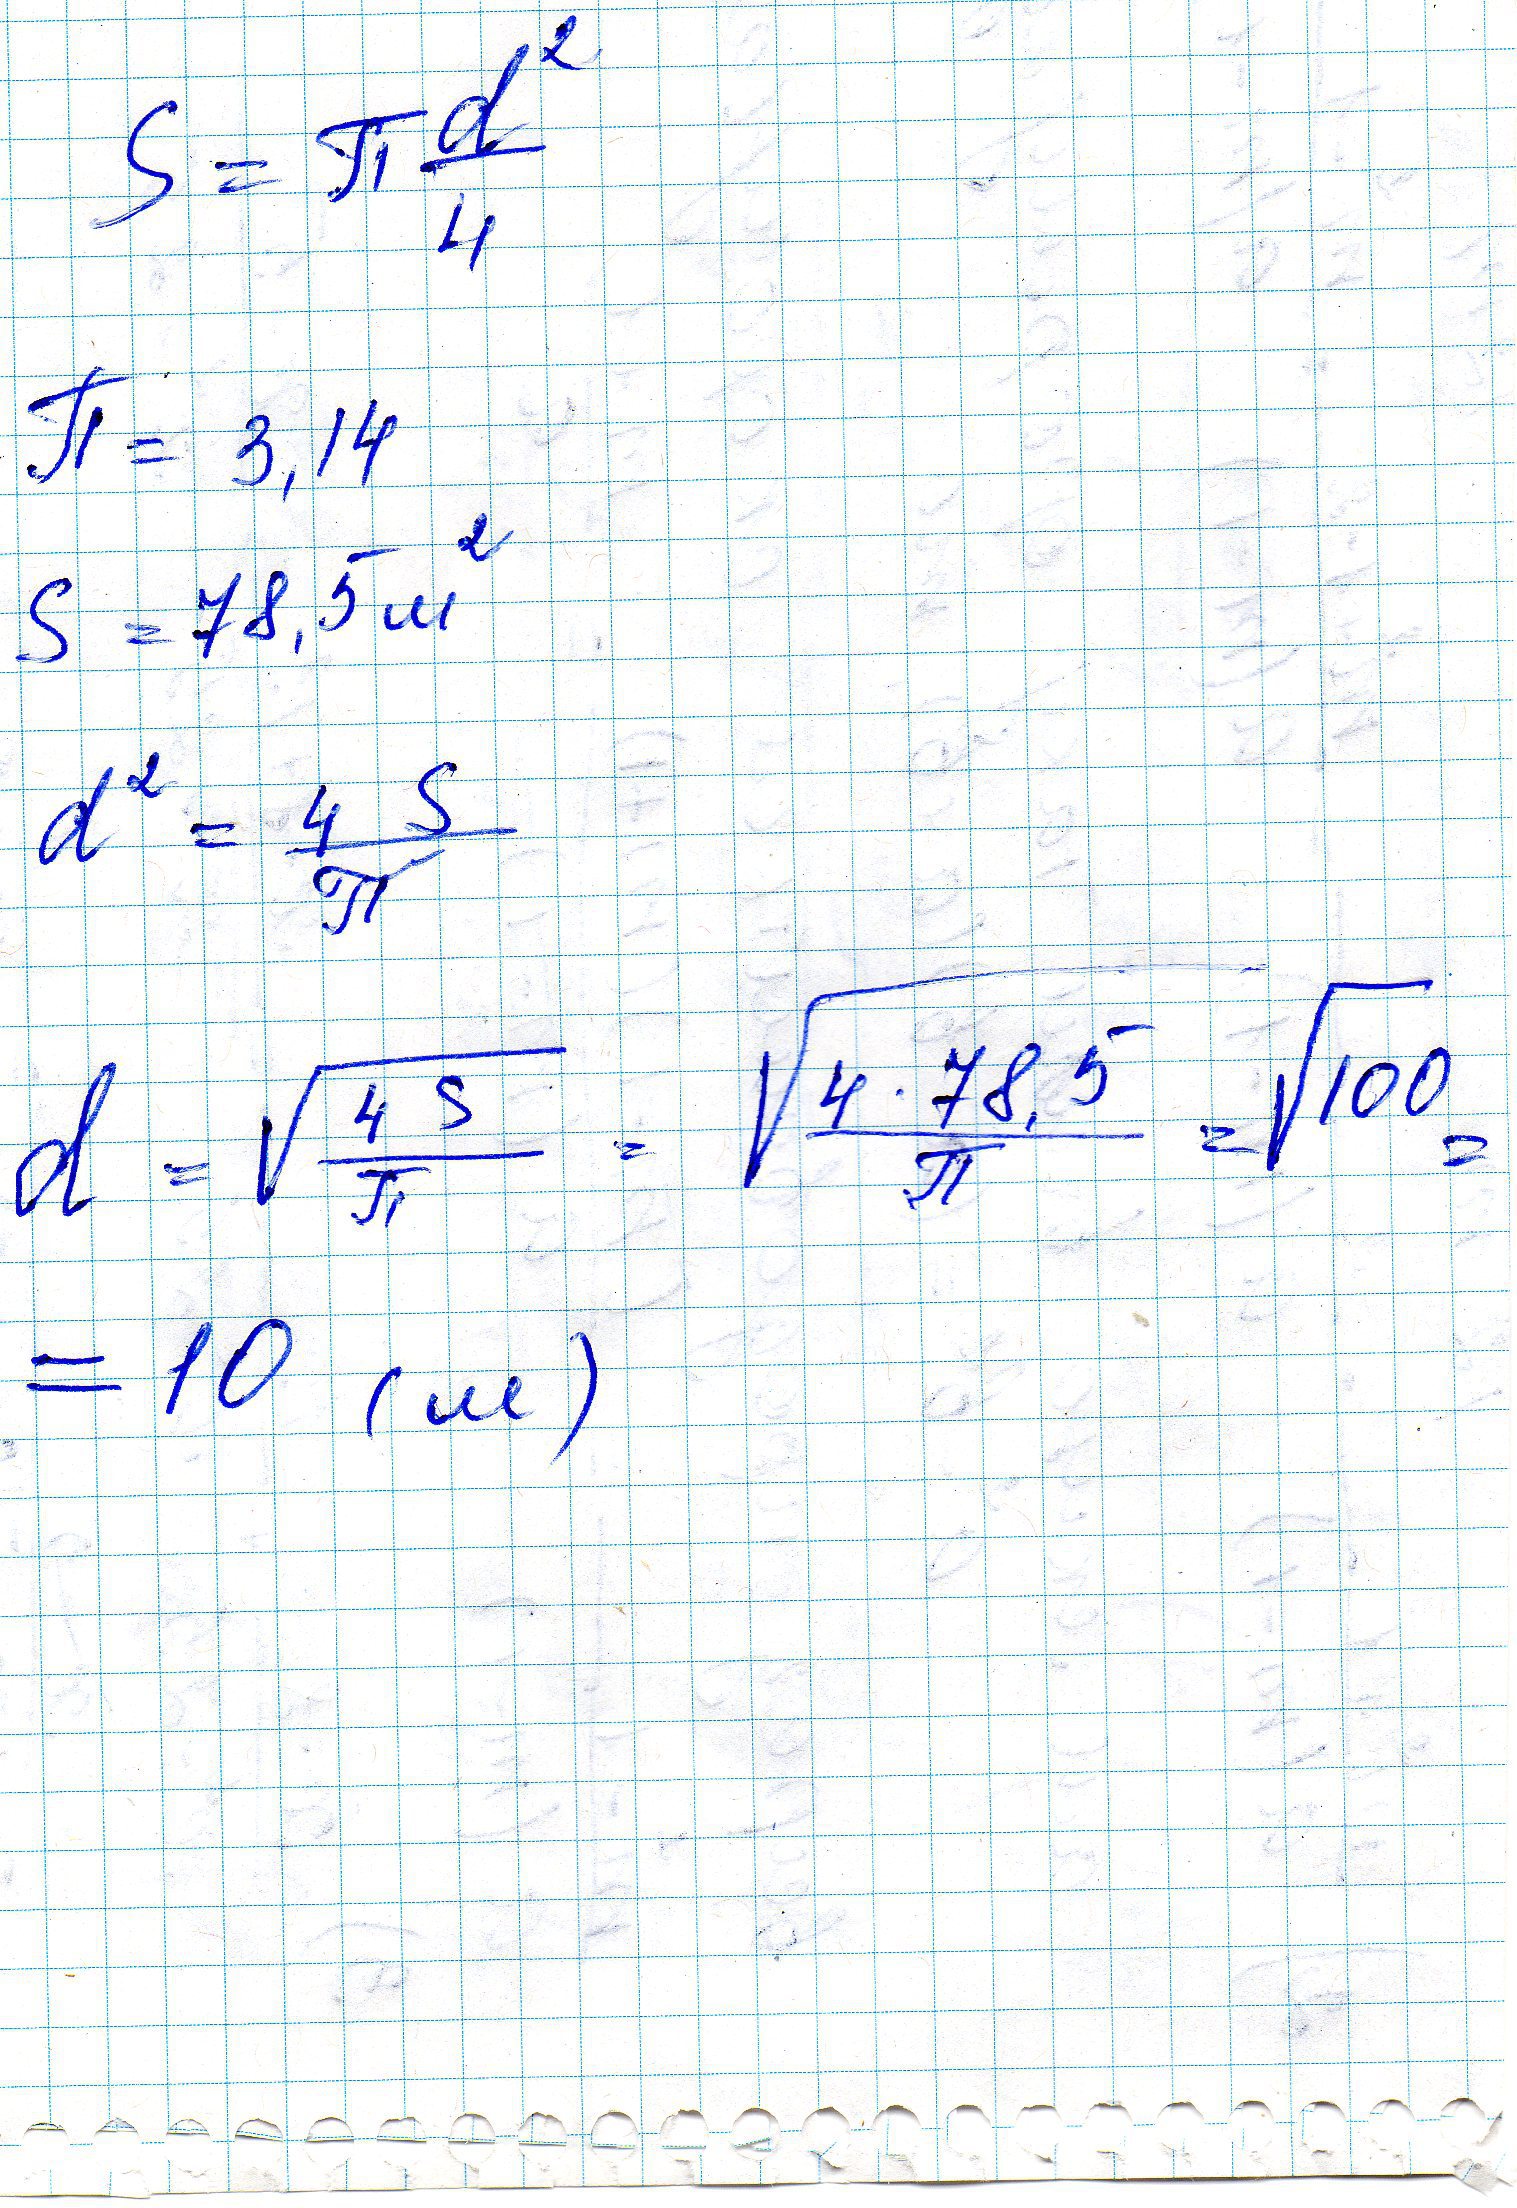 S = π d²/4
π = 3,14
S = 78,5 м²
d² = 4 S/π
d = √(4 S/π) = √(4 · 78,5/π) = √100 =
= 10 (м)